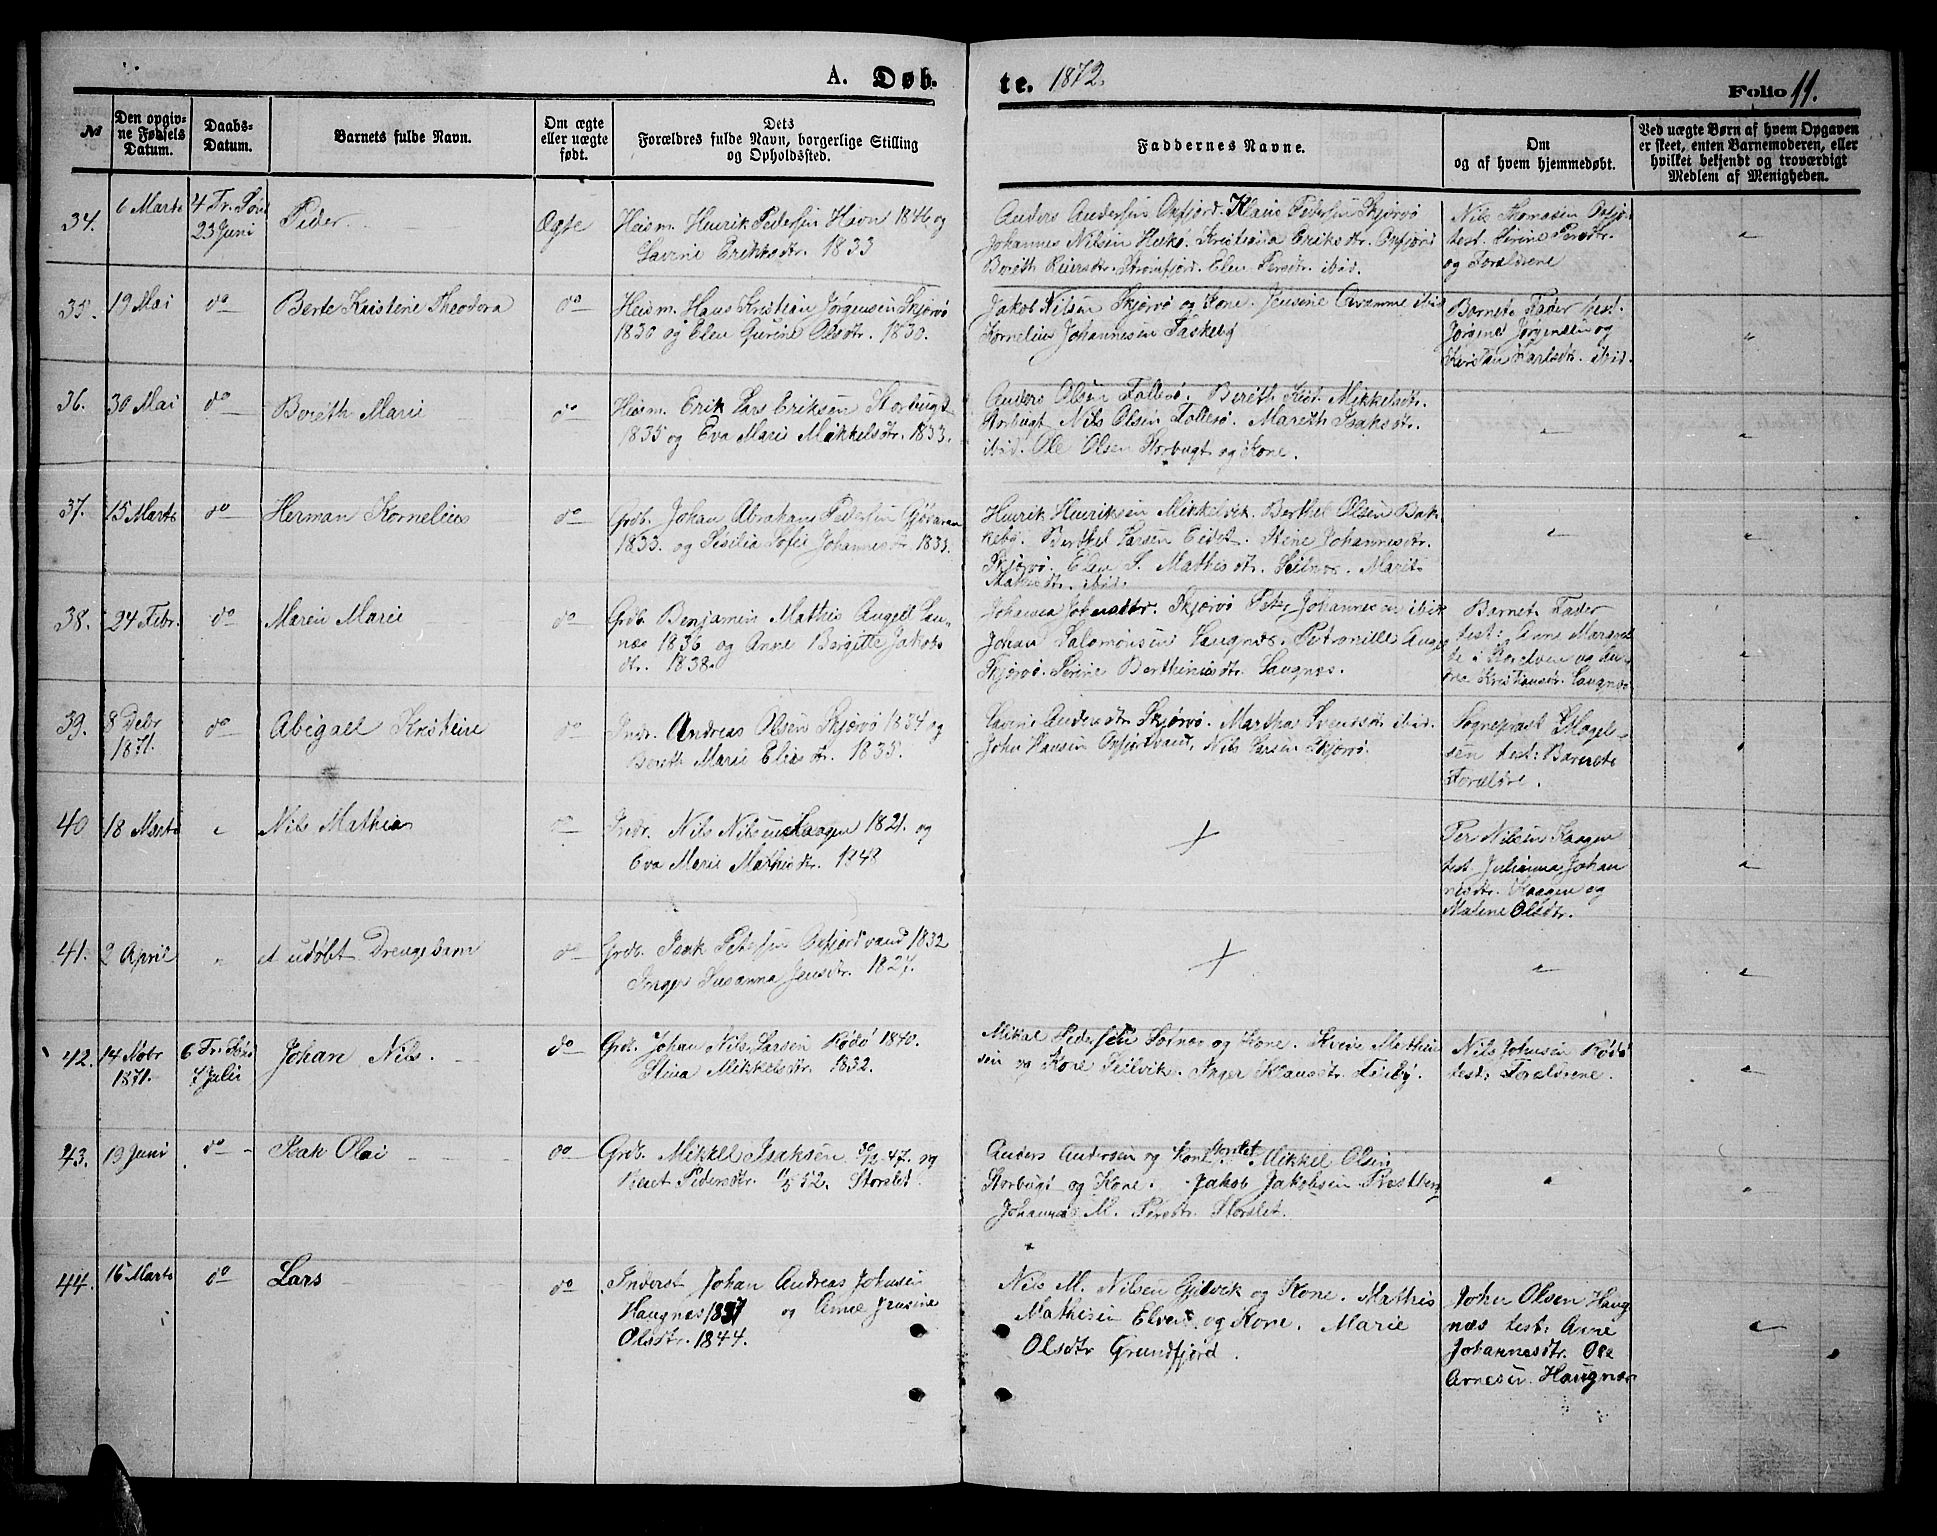 A. Døb-
te. 1872.
Folio 11.
№
Den opgiv-
ne Fødsels
Datum.
Daabs-
Datum.
Barnets fulde Navn.
Om ægte
eller uægte
født.
Dets
Forældres fulde Navn, borgerlige Stilling
og Opholdssted.
Faddernes Navne.
Om
og af hvem hjemmedøbt.
Ved uægte Børn af hvem Opgaven
er skeet, enten Barnemoderen, eller
hvilket bekjendt og troværdigt
Medlem af Menigheden.
34.
6 Marts
4 Tr. Sønd
23 Juni
Peder
Ægte
Huusm. Henrik Pedersen Havn 1846 og
Lavine Eriksdtr. 1833
Anders Andersen Oxfjord. Klaus Pedersen Skjervø
Johannes Nilsen Hekø. Kristiana Eriksdtr. Oxfjord
Bereth Reiersdtr. Strømfjord. Elen Persdtr. ibid.
Nils Thomasen
test. Serine Persdtr.
og Forældrene
35.
19 Mai
do
Berte Kristine Theodora
do
Huusm. Hans Kristian Jørgensen Skjervø
1830 og Elen Gurine Olsdtr. 1830.
Jakob Nilsen Skjervø og Kone. Jensine ibid
Kornelius Johannesen Taskeby
Barnets Fader test.
Jørgensen og
Karlsdtr. ibid.
36.
30 Mai
do
Bereth Marie
do
Huusm. Erik Lars Eriksen Storbugt
1835 og Eva Marie Mikkelsdtr. 1833.
Anders Olsen Follesø. Bereth Kirst. Mikkelsdtr.
Storbugt Nils Olsen Follesø. Mareth Isaksdtr.
ibid. Ole Olsen Storbugt og Kone.
37.
15 Marts
do
Herman Kornelius
do
Grdb. Johan Abraham Pedersen Gjøvaren
1833. og Sisilia Sofie Johannesdtr. 1831.
Henrik Henriksen Mikkelvik. Berthel Olsen Bak-
kebø. Berthel Larsen Eidet. Stine Johannesdtr.
Skjervø. Elen S. Mathisdtr. Seilnes. Marit
Mathisdtr. ibid.
38.
24 Febr.
do
Maren Marie
do
Grdb. Benjamin Mathis Angell Laug-
nes 1836 og Anne Bergitte Jakobs
dtr. 1838.
Johanna Johansdtr. Skjervø Peter Johannesen ibid
Johan Salomonsen Laugnes. Petronille Angel
Skjervø. Serine Berthiniusdtr. Laugnes.
Barnets Fader
test: Anne Margre-
the
Kristiansdtr. Laugnes
39.
8 Debr
1871.
do
Abigael Kristine
do
Indr. Andreas Olsen Skjervø 1834 og
Bereth Marie Eliasdtr. 1835.
Lavine Andersdtr. Skjervø. Martha Svendsdtr ibid.
John Hansen Oxfjordvand, Nils Larsen Skjervø.
Sognepræst
test: Barnets
Forældre.
40
18 Marts
Nils Mathis
do
Indr. Nils Nilsen Kaagen 1821. og
Eva Marie Mathisdtr. 1848
Per Nilsen Kaagen
test. Julianna Johan
nesdtr. Kaagen og
Malene Olsdtr.
41.
2 April
et udøbt Drengebarn
do
Grdb. Isak Petersen Oxfjordvand 1832
Inger Susanna Jensdtr. 1827.
42.
14 Nobr
1871.
6 Tr. Sønd
7 Juli
Johan Nils.
do
Grdb. Johan Nils Larsen Rødø 1840.
Stina Mikkelsdtr. 1832.
Mikal Pedersen Sotnes og Kone. Mathis
sen og Kone Seilvik. Inger Klausdtr.
Nils Johnsen Rødø
test: Forældrene.
43.
19 Juni
do
Isak Olai
do
Grdb. Mikkel Isaksen 3/2 47. og
Beret Pedersdtr. 11/5 52. Storslet.
Anders Andersen og Kone Storslet Mikkel Olsen
Storbugt og Kone. Jakob Jakobsen Præstberg
Johanna M. Persdtr. Storslet.
44.
16 Marts
do
Lars
do
Inderst Johan Andreas Johnsen
Haugnes 1837 og Anne Jensine
Olsdtr. 1844.
Nils M. Nilsen Gjilvik og Kone. Mathis
Mathisen Elven og Kone. Marie
Olsdtr Grundfjord.
John Olsen Haug
næs test: Anne
Johannesdtr. Ole
Arnesen Haugnæs